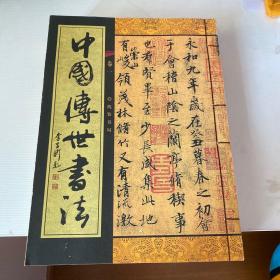 中國傳世書法
线装书局
永和九年歲在癸丑暮春之初會
于會稽山陰之蘭亭脩稧事
也羣賢畢至少長咸集此地
有崇山峻領茂林脩竹又有清流激